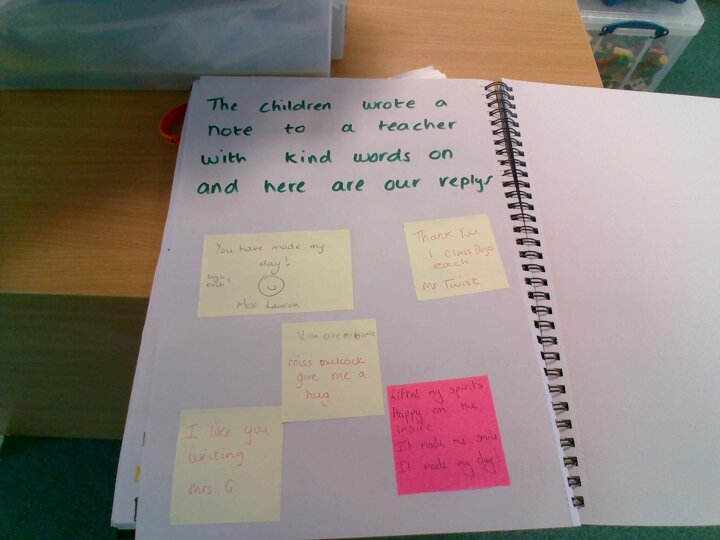 The children wrote a
note to a teacher
with kind words on
and here are our replys
You have made my
day!
Dojo,
each
Miss Lawson
Thank You
1 Class Dojo
each
Mr Twist
You are
miss mulcock
give me a
hug
Lifted my spirits,
Happy on the
inside
It made me smile
It made my day!
I like you
writing
mrs G.